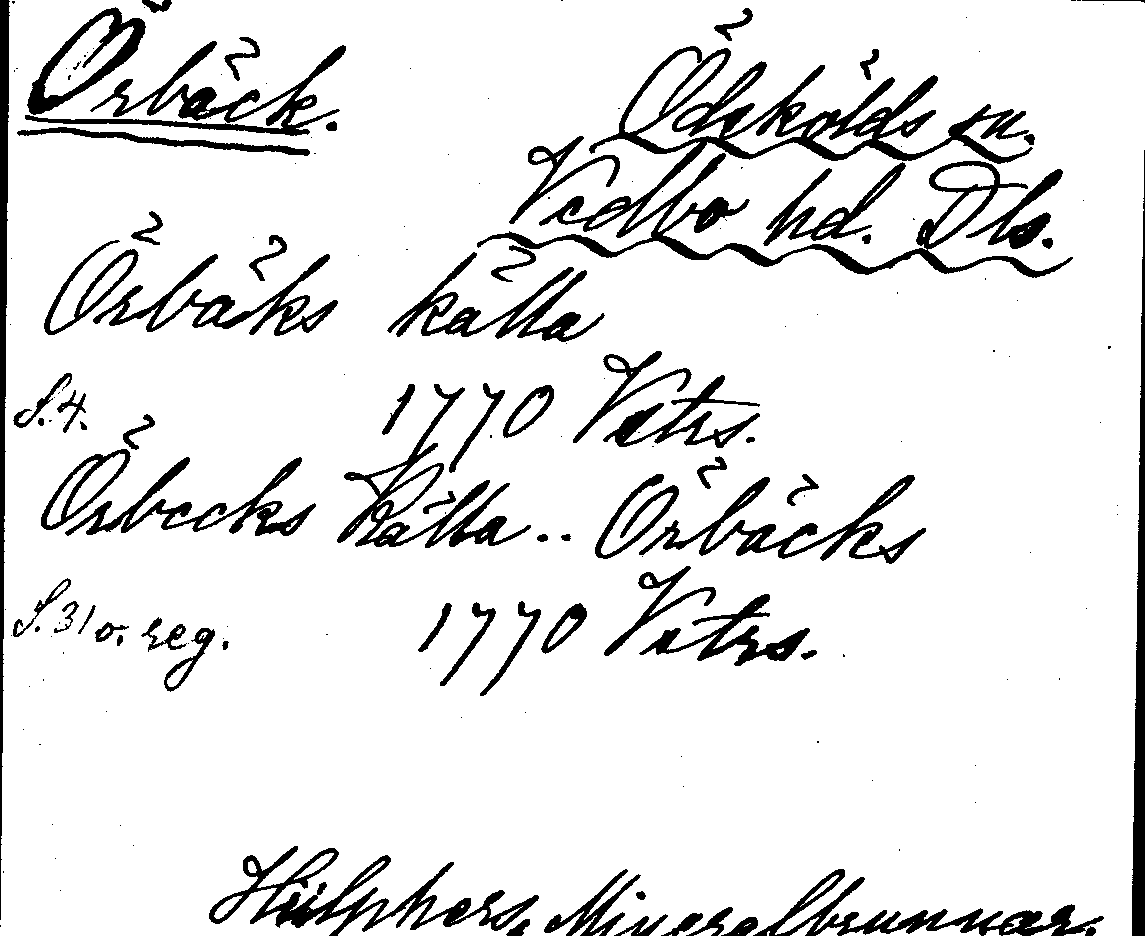 Örbäck.
Ödskölds sn.
Vedbo hd. Dls.
Örbäks källa
S. 4. 1770 Vstrs.
Örbecks Källa .. Örbäcks
S. 31 o. reg. 1770 Vstrs.
Hülphers, Mineralbrunnar.